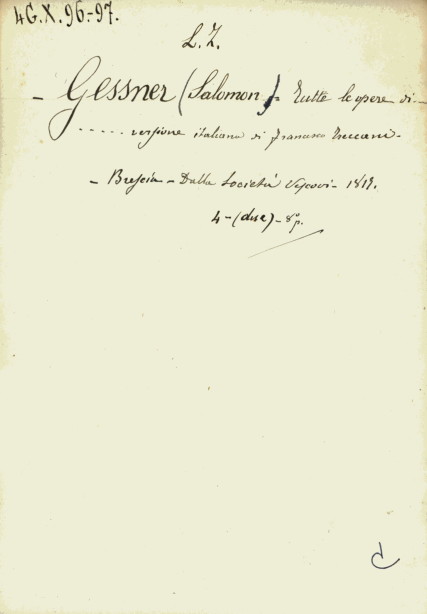 4G.X.96-97.
L.Z.
- Gessner (Salomon)= Tutte le opere di -
- - - - - versione italiana di Francesco Treccani -
- Brescia - Dalla Società Vescovi - 1819.
4 - (due) - 8º p.